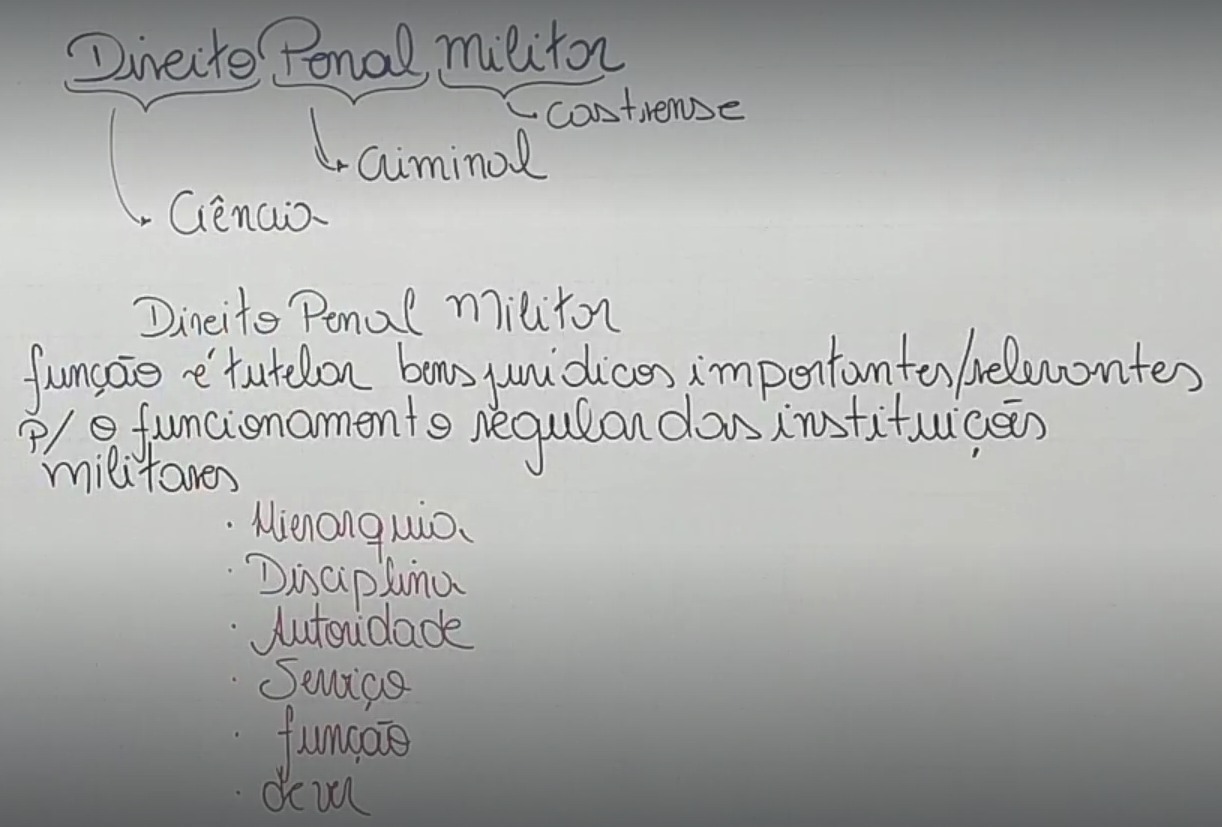 Direito Penal militar
castrense
criminal
Ciência
Direito Penal Militar
função é tutelar bens jurídicos importantes/relevantes
p/ o funcionamento regular das instituições
militares
· Hierarquia
· Disciplina
· Autoridade
· Serviço
· função
· dever